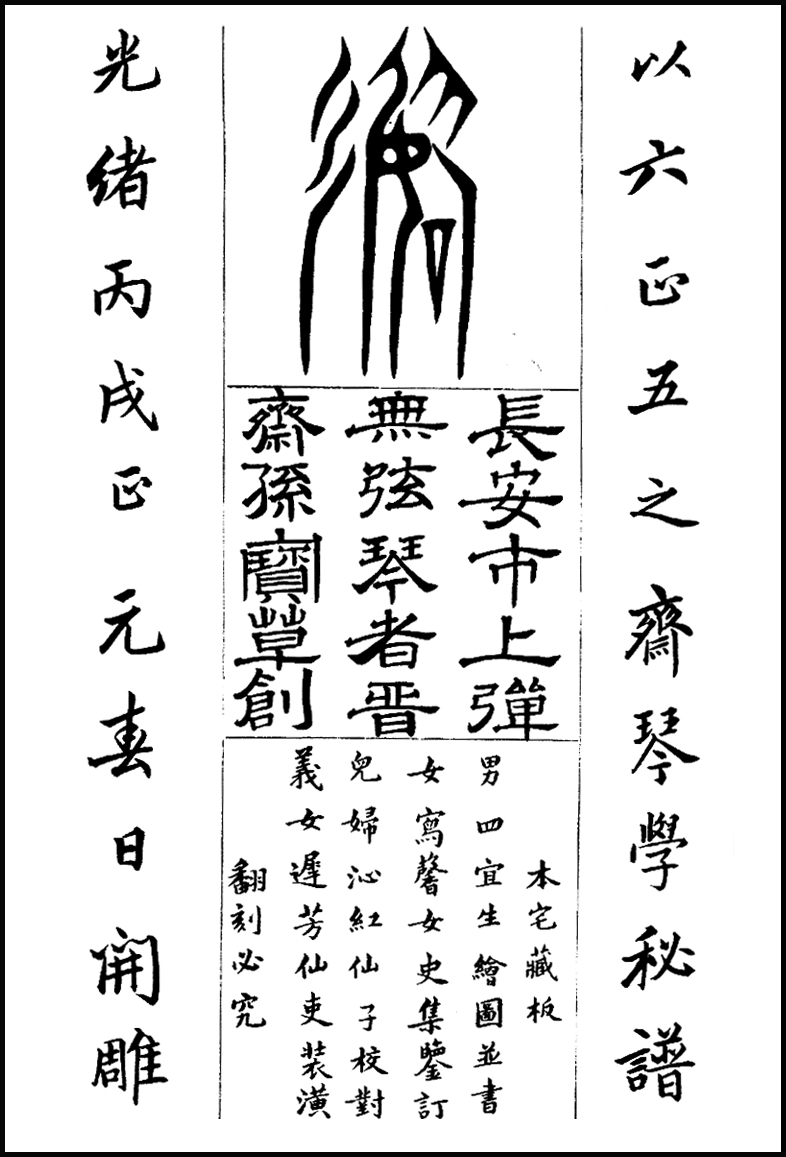 以六正五之齋琴學秘譜
長安市上彈
無弦琴者晉
齋孫寶草創
本宅藏板
男四宜生繪圖並書
女寫馨女史集鑑訂
兒婦沁紅仙子校對
義女遲芳仙吏裝潢
翻刻必究
光緒丙戌正元春日開雕